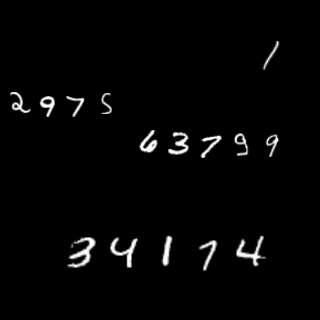 1
2975
63799
34174